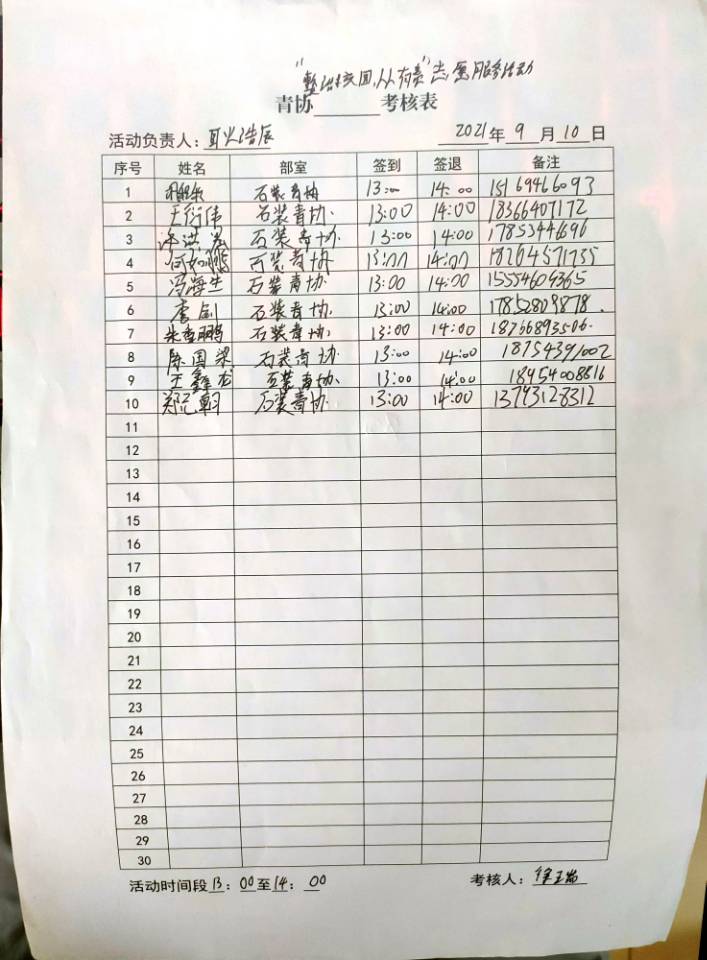 "整治校园,人人有责"志愿服务活动
青协 考核表
活动负责人: 耿浩辰 2021年9月10日
序号 姓名 部室 签到 签退 备注
1 石装青协 13:00 14:00 15169466093
2 王衍伟 石装青协. 13:00 14:00 18366407172
3 许洪 石装青协. 13:00 14:00 17853441696
4 何如鹏 石装青协 13:00 14:00 18264571735
5 冯海生 石装青协 13:00 14:00 15554604365
6 李剑 石装青协. 13:00 14:00 17852809878.
7 朱 鹏 石装青协. 13:00 14:00 18766893506.
8 陈国梁 石装青协. 13:00 14:00 18754391002
9 王鑫龙 石装青协. 13:00 14:00 18954008816
10 郑 朝 石装青协. 13:00 14:00 13793128312
11
12
13
14
15
16
17
18
19
20
21
22
23
24
25
26
27
28
29
30
活动时间段 13:00至14:00 考核人: 徐玉瑞